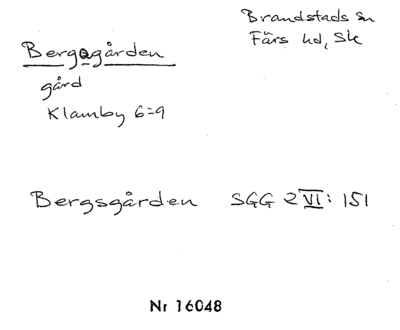 Brandstads sn
Färs hd, Sk
Bergagården
gård
Klamby 6:9
Bergsgården SGG 2 VI: 151
Nr 16048